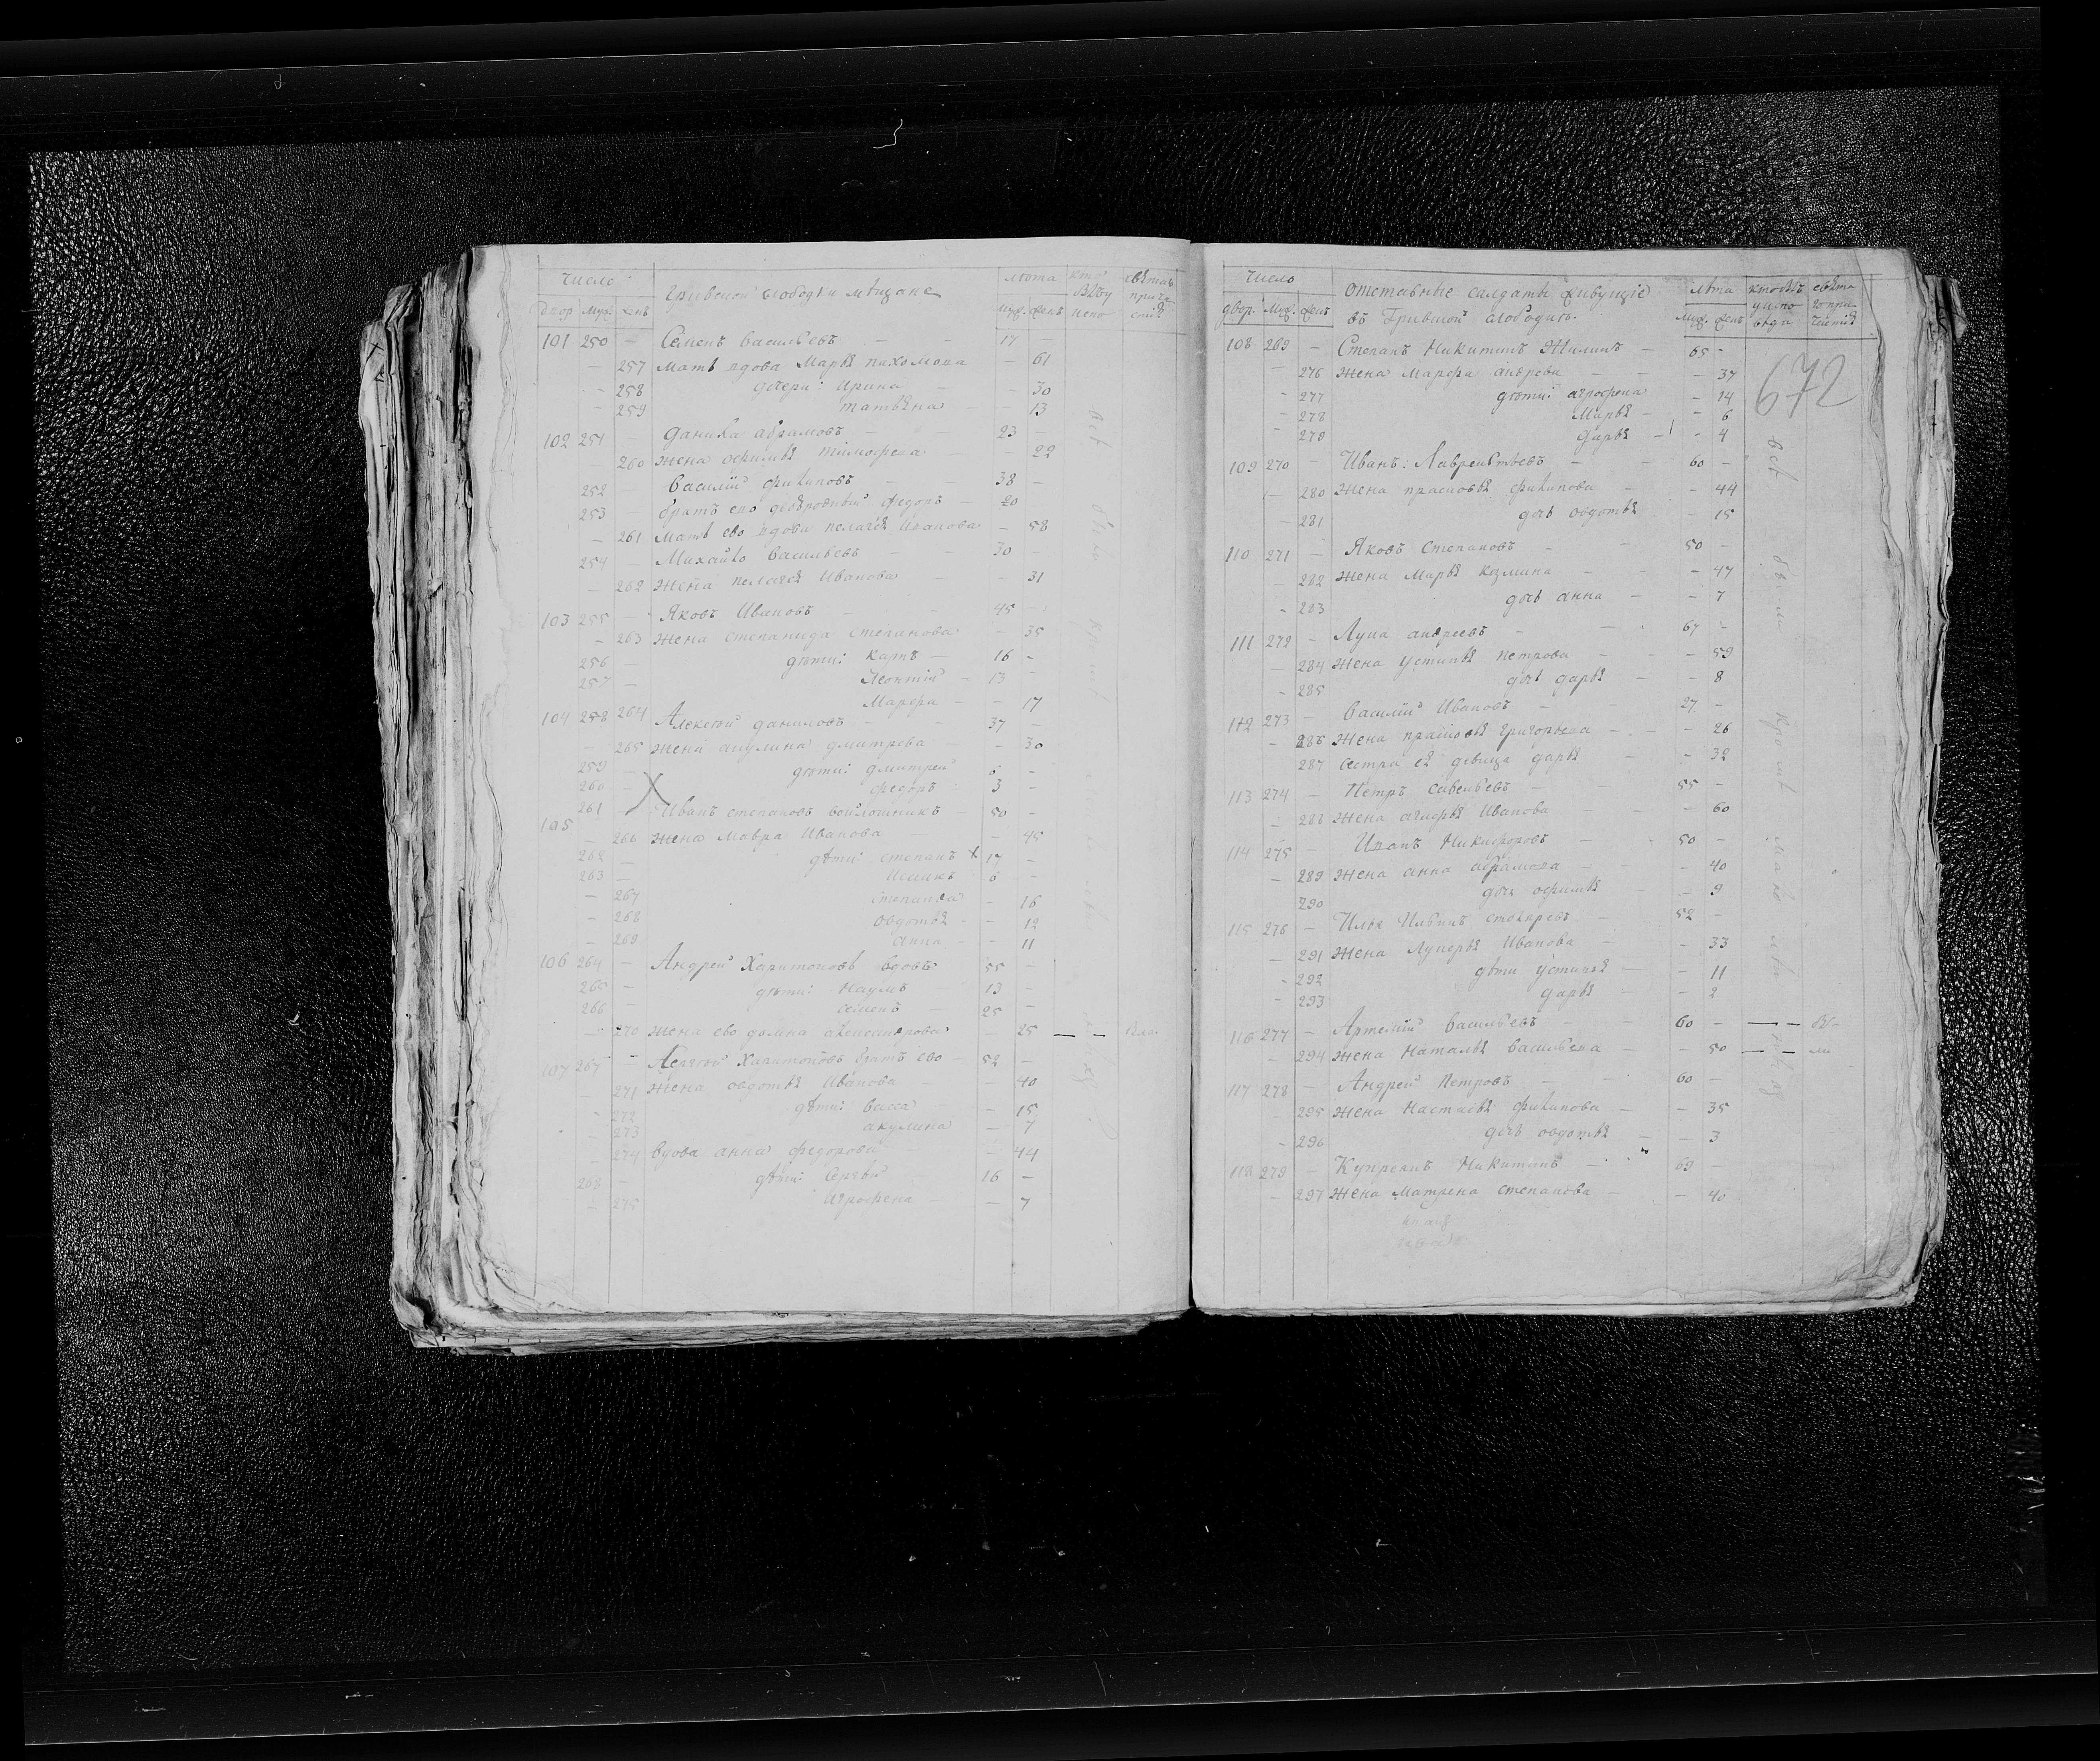 число
Гривской слободы мѣщане
лѣта
двор муж. жен.
муж. женъ
101 250 — Семенъ васильевъ — 17 —
— 257 мать вдова Марья пахомова — 61
— 258 дочери: Ирина — 30
— 259 татьяна — 13
102 251 — данила абрамовъ — 23 —
— 260 жена офимья тимофеева — 22
252 — василий филиповъ — 38 —
253 — братъ ево федоръ — 20
— 261 мать ево вдова пелагея иванова — 58
254 — Михайло васильевъ — 30 —
— 262 жена пелагея иванова — 31
103 255 — Яковъ Ивановъ — 45 —
— 263 жена степанида степанова — 35
256 — дѣти: карпъ — 16 —
257 — Леонтий — 13 —
264 Марфа — 17
104 258 Алексѣй даниловъ — 37 —
— 265 жена акулина дмитрева — 30
259 — дѣти: дмитрей 6 —
260 — федоръ: 3 —
105 261 — Иванъ степановъ войлошникъ — 50 —
— 266 жена мавра Иванова — 45
262 — дѣти: степанъ 17 —
263 — Исаакъ 6 —
— 267 степанида — 16
— 268 овдотья — 12
— 269 анна — 11
106 264 — Андрей Харитоновъ вдовъ 55 —
265 — дѣти: наумъ 13 —
266 — семенъ — 25 —
— 270 жена ево домна александрова — 25 — —
107 267 — Алексѣй Харитоновъ братъ ево — 52 —
— 271 жена овдотья Иванова — 40
— 272 дѣти: васса — 15
— 273 акулина — 7
— 274 вдова анна федорова — 44
268 — дѣти: Сергѣй 16 —
— 275 Агрофена — 7
число
отставные салдаты живущіе
въ Гривской слободѣ.
лѣта
двор. Муж. жен
муж. жен
672
108 269 — Степанъ Никитинъ Жилинъ — 65 —
— 276 жена Марфа андреева — 37
— 277 дѣти: агрофена — 14
— 278 Марья — 6
— 279 дарья — 4
109 270 — Иванъ: Лаврентьевъ — 60 —
— 280 жена прасковья филипова — 44
— 281 дочь овдотья — 15
110 271 — Яковъ степановъ — 50 —
— 282 жена Марья козмина — 47
— 283 дочь анна — 7
111 272 — Лупа андреевъ — 67 —
— 284 жена устинья петрова — 59
— 285 дочь дарья — 8
112 273 — василий Ивановъ — 27 —
— 286 жена прасковья григорьева — 26
287 сестра ея девица дарья — 32
113 274 — Петръ савельевъ — 55 —
— 288 жена агафья Иванова — 60
114 275 — Иванъ Никифоровъ — 50 —
— 289 жена анна абрамова — 40
290 дочь офимья — 9
115 276 — Илья Ильинъ столяревъ — 52 —
— 291 жена Лукерья Иванова — 33
— 292 дѣти устинья — 11
— 293 дарья — 2
116 277 — Артемий васильевъ — 60 — — —
— 294 жена Наталья васильева — 50 — —
117 278 — Андрей петровъ — 60 —
— 295 жена Настасья филипова — 35
— 296 дочь овдотья — 3
118 279 — Купреянъ Никитинъ — 69 —
— 297 жена матрена степанова — 40